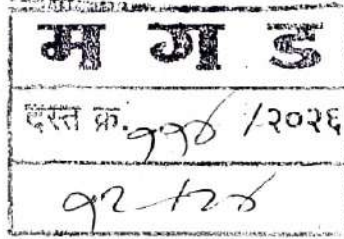 म ग ड
दस्त क्र. ११४ /२०२६
१२ / २४